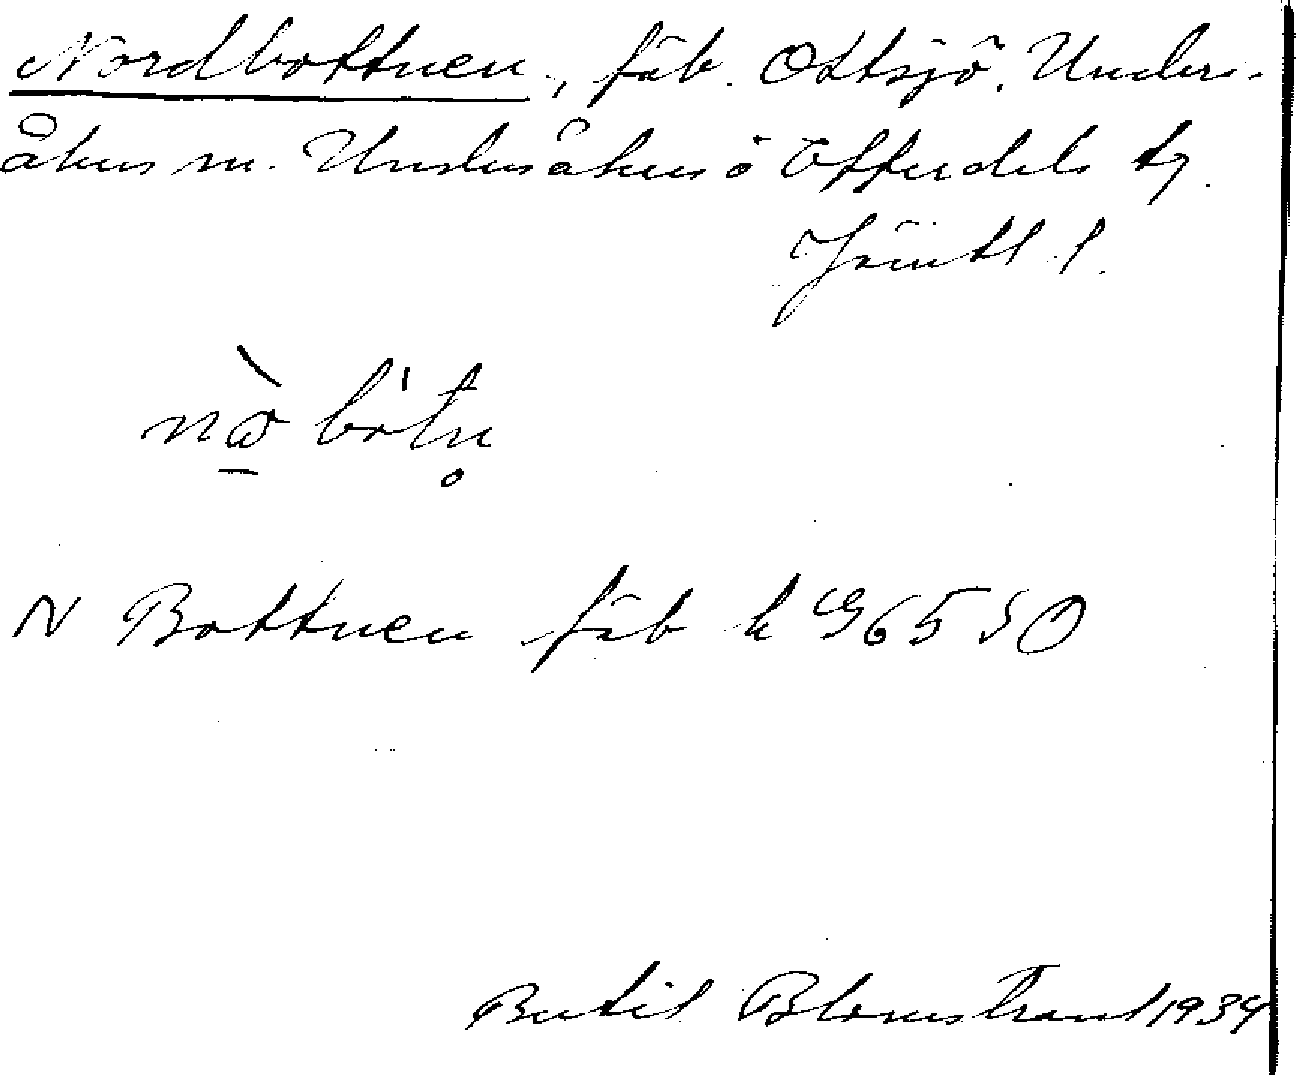 Nordbottnen, fäb. Ottsjö, Unders-
åkers sn. Undersåkers o Offerdals tg.
Jämtl. l.
nɷ̠̀ bo'tn̥
N Bottnen fäb k 96550
Bertil Blomstrand 1934